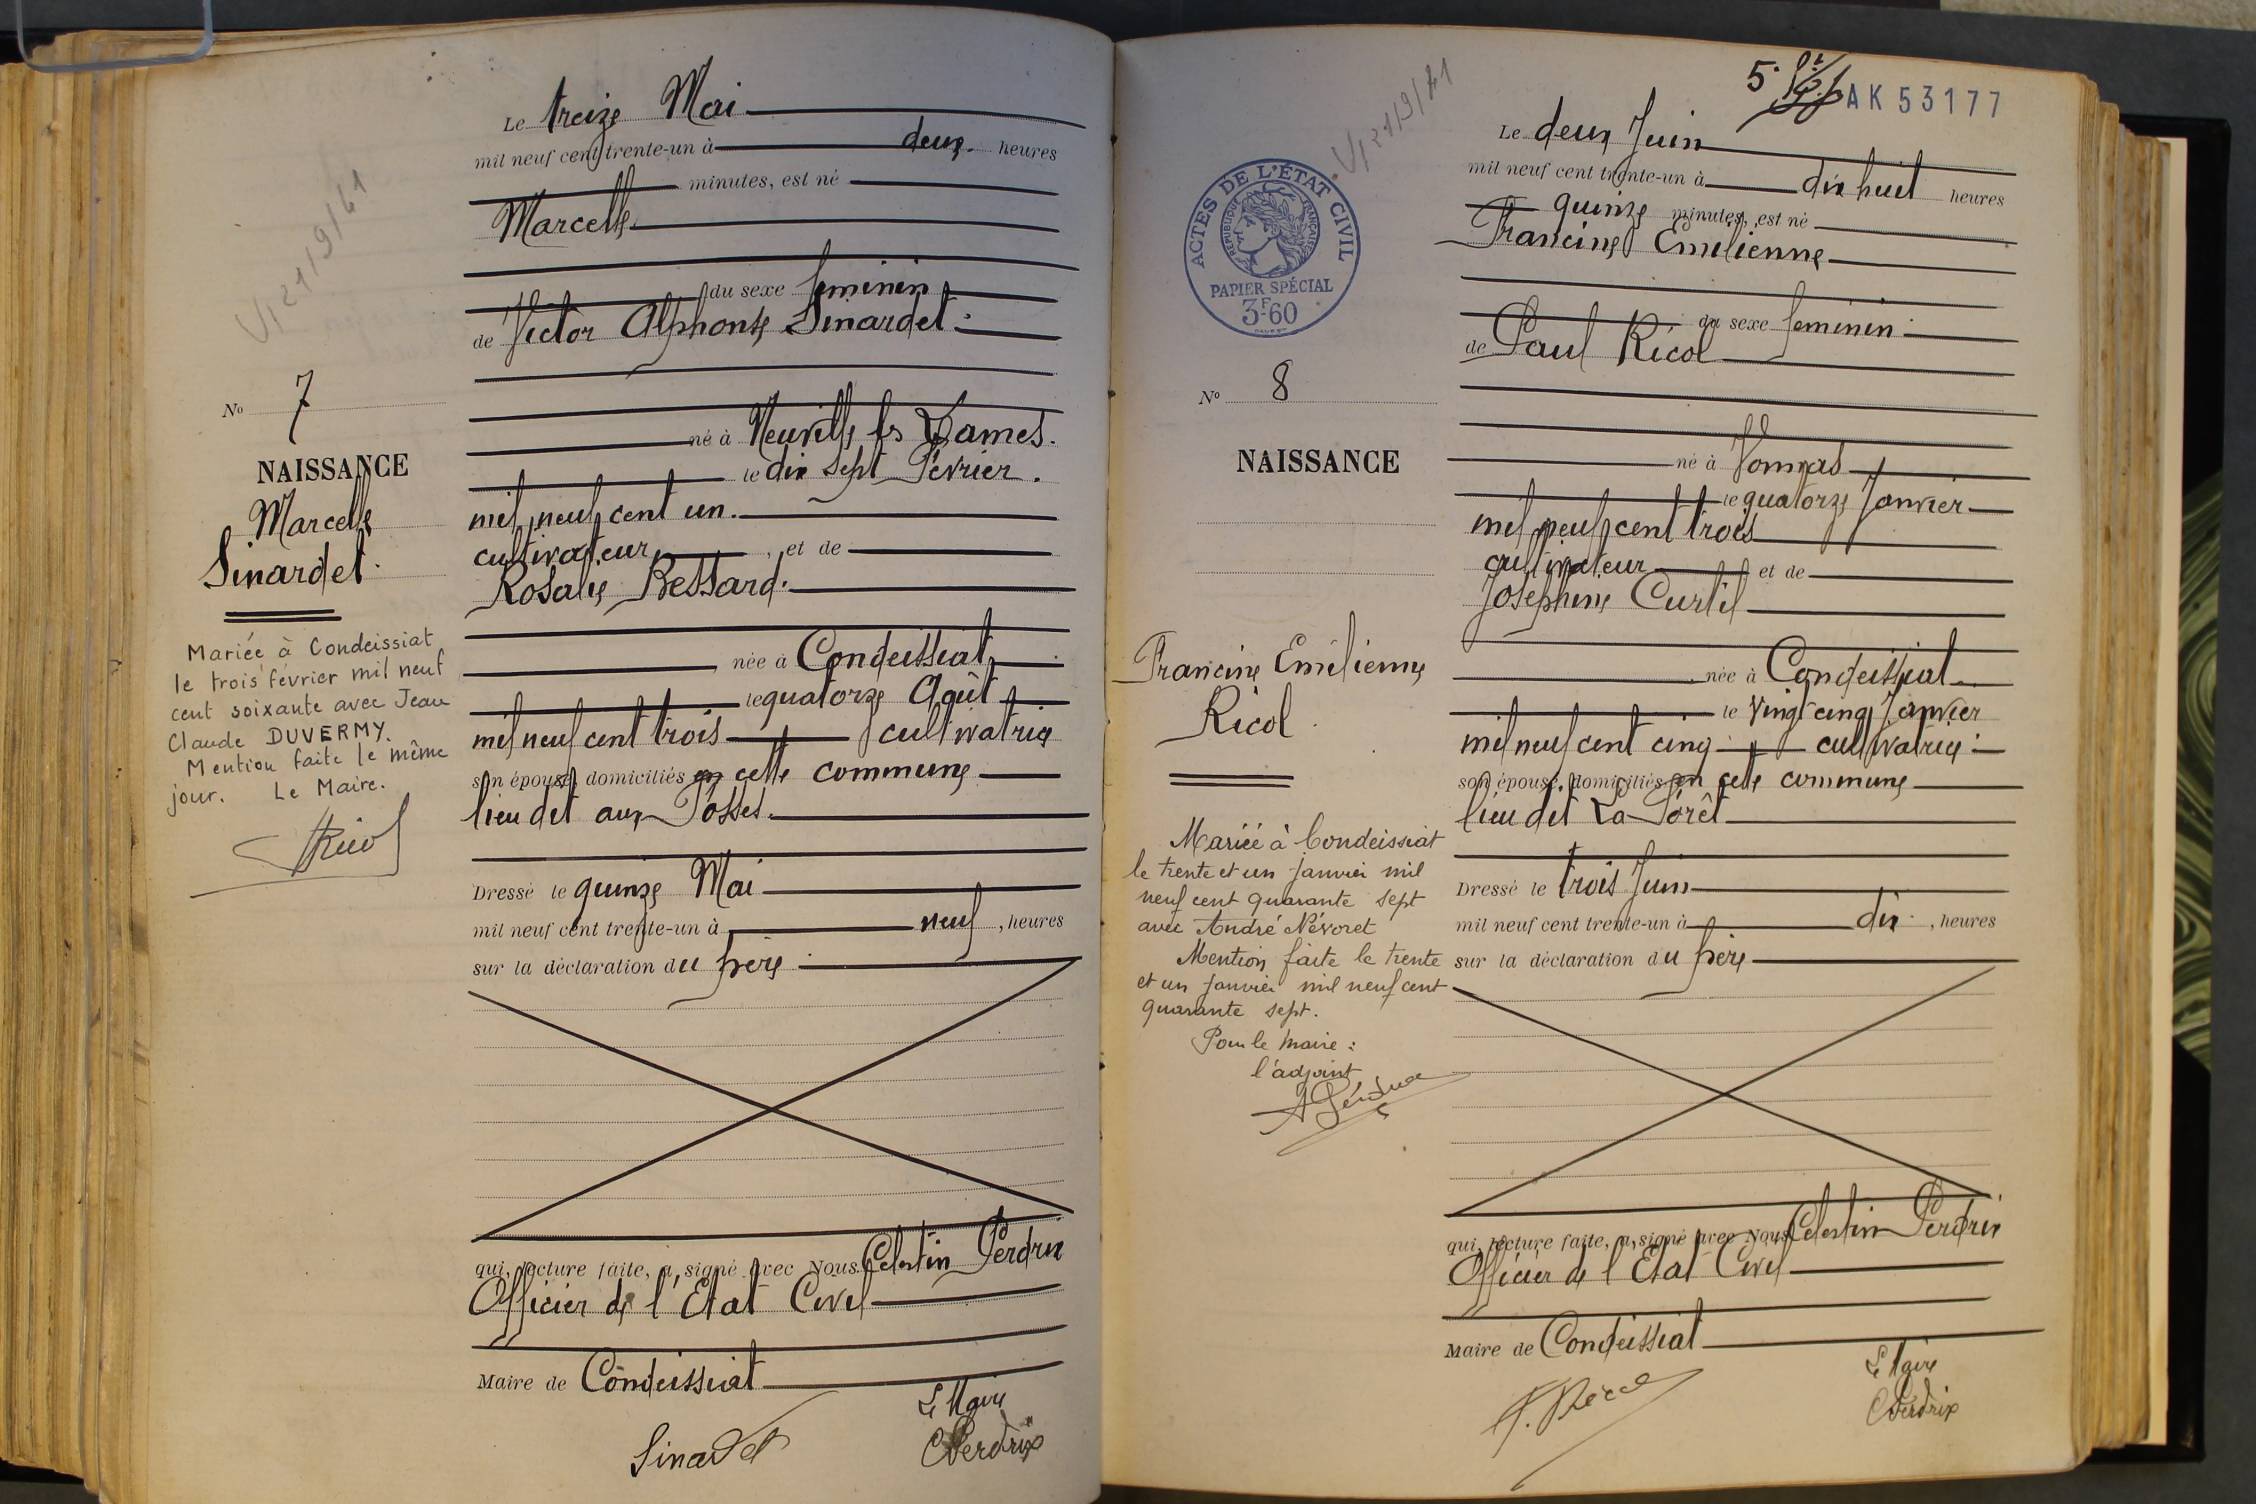 Le treize Mai
mil neuf cent trente-un à deux heures
minutes, est né
Marcelle
du sexe féminin
de Victor Alphonse Sinardet
né à Neuville les Dames.
le dix sept Février.
mil neuf cent un.
cultivateur, et de
Rosalie Bessard.
née à Condeissiat
le quatorze Août
mil neuf cent trois cultivatrice
son épouse, domiciliés en cette commune
lieu dit aux Fosses.
Dressé le quinze Mai
mil neuf cent trente-un à neuf, heures
sur la déclaration du père
qui, lecture faite, a signé avec Nous Célestin Perdrix
Officier de l'Etat Civil
Maire de Condeissiat
Le Maire
Sinardet
CPerdrix
21/9/41
No 7
NAISSANCE
Marcelle
Sinardet.
Mariée à Condeissiat
le trois février mil neuf
cent soixante avec Jean
Claude DUVERMY.
Mention faite le même
jour. Le Maire.
5e
AK 53177
Le deux Juin
mil neuf cent trente-un à dix huit heures
quinze minutes, est né
Francine Emilienne
du sexe féminin
de Paul Ricol
né à Vonnas
le quatorze Janvier
mil neuf cent trois
cultivateur et de
Joséphine Curtil
née à Condeissiat
le vingt cinq Janvier
mil neuf cent cinq cultivatrice
son épouse, domiciliés en cette commune
lieu dit La Forêt
Dressé le trois Juin
mil neuf cent trente-un à dix, heures
sur la déclaration du père
qui, lecture faite, a signé avec Nous Célestin Perdrix
Officier de l'Etat Civil
Maire de Condeissiat
Le Maire
CPerdrix
21/9/41
ACTES DE L'ÉTAT CIVIL
RÉPUBLIQUE FRANÇAISE
PAPIER SPÉCIAL
3F60
No 8
NAISSANCE
Francine Emilienne
Ricol
Mariée à Condeissiat
le trente et un janvier mil
neuf cent quarante sept
avec André Névoret
Mention faite le trente
et un janvier mil neuf cent
quarante sept.
Pour le maire :
l'adjoint